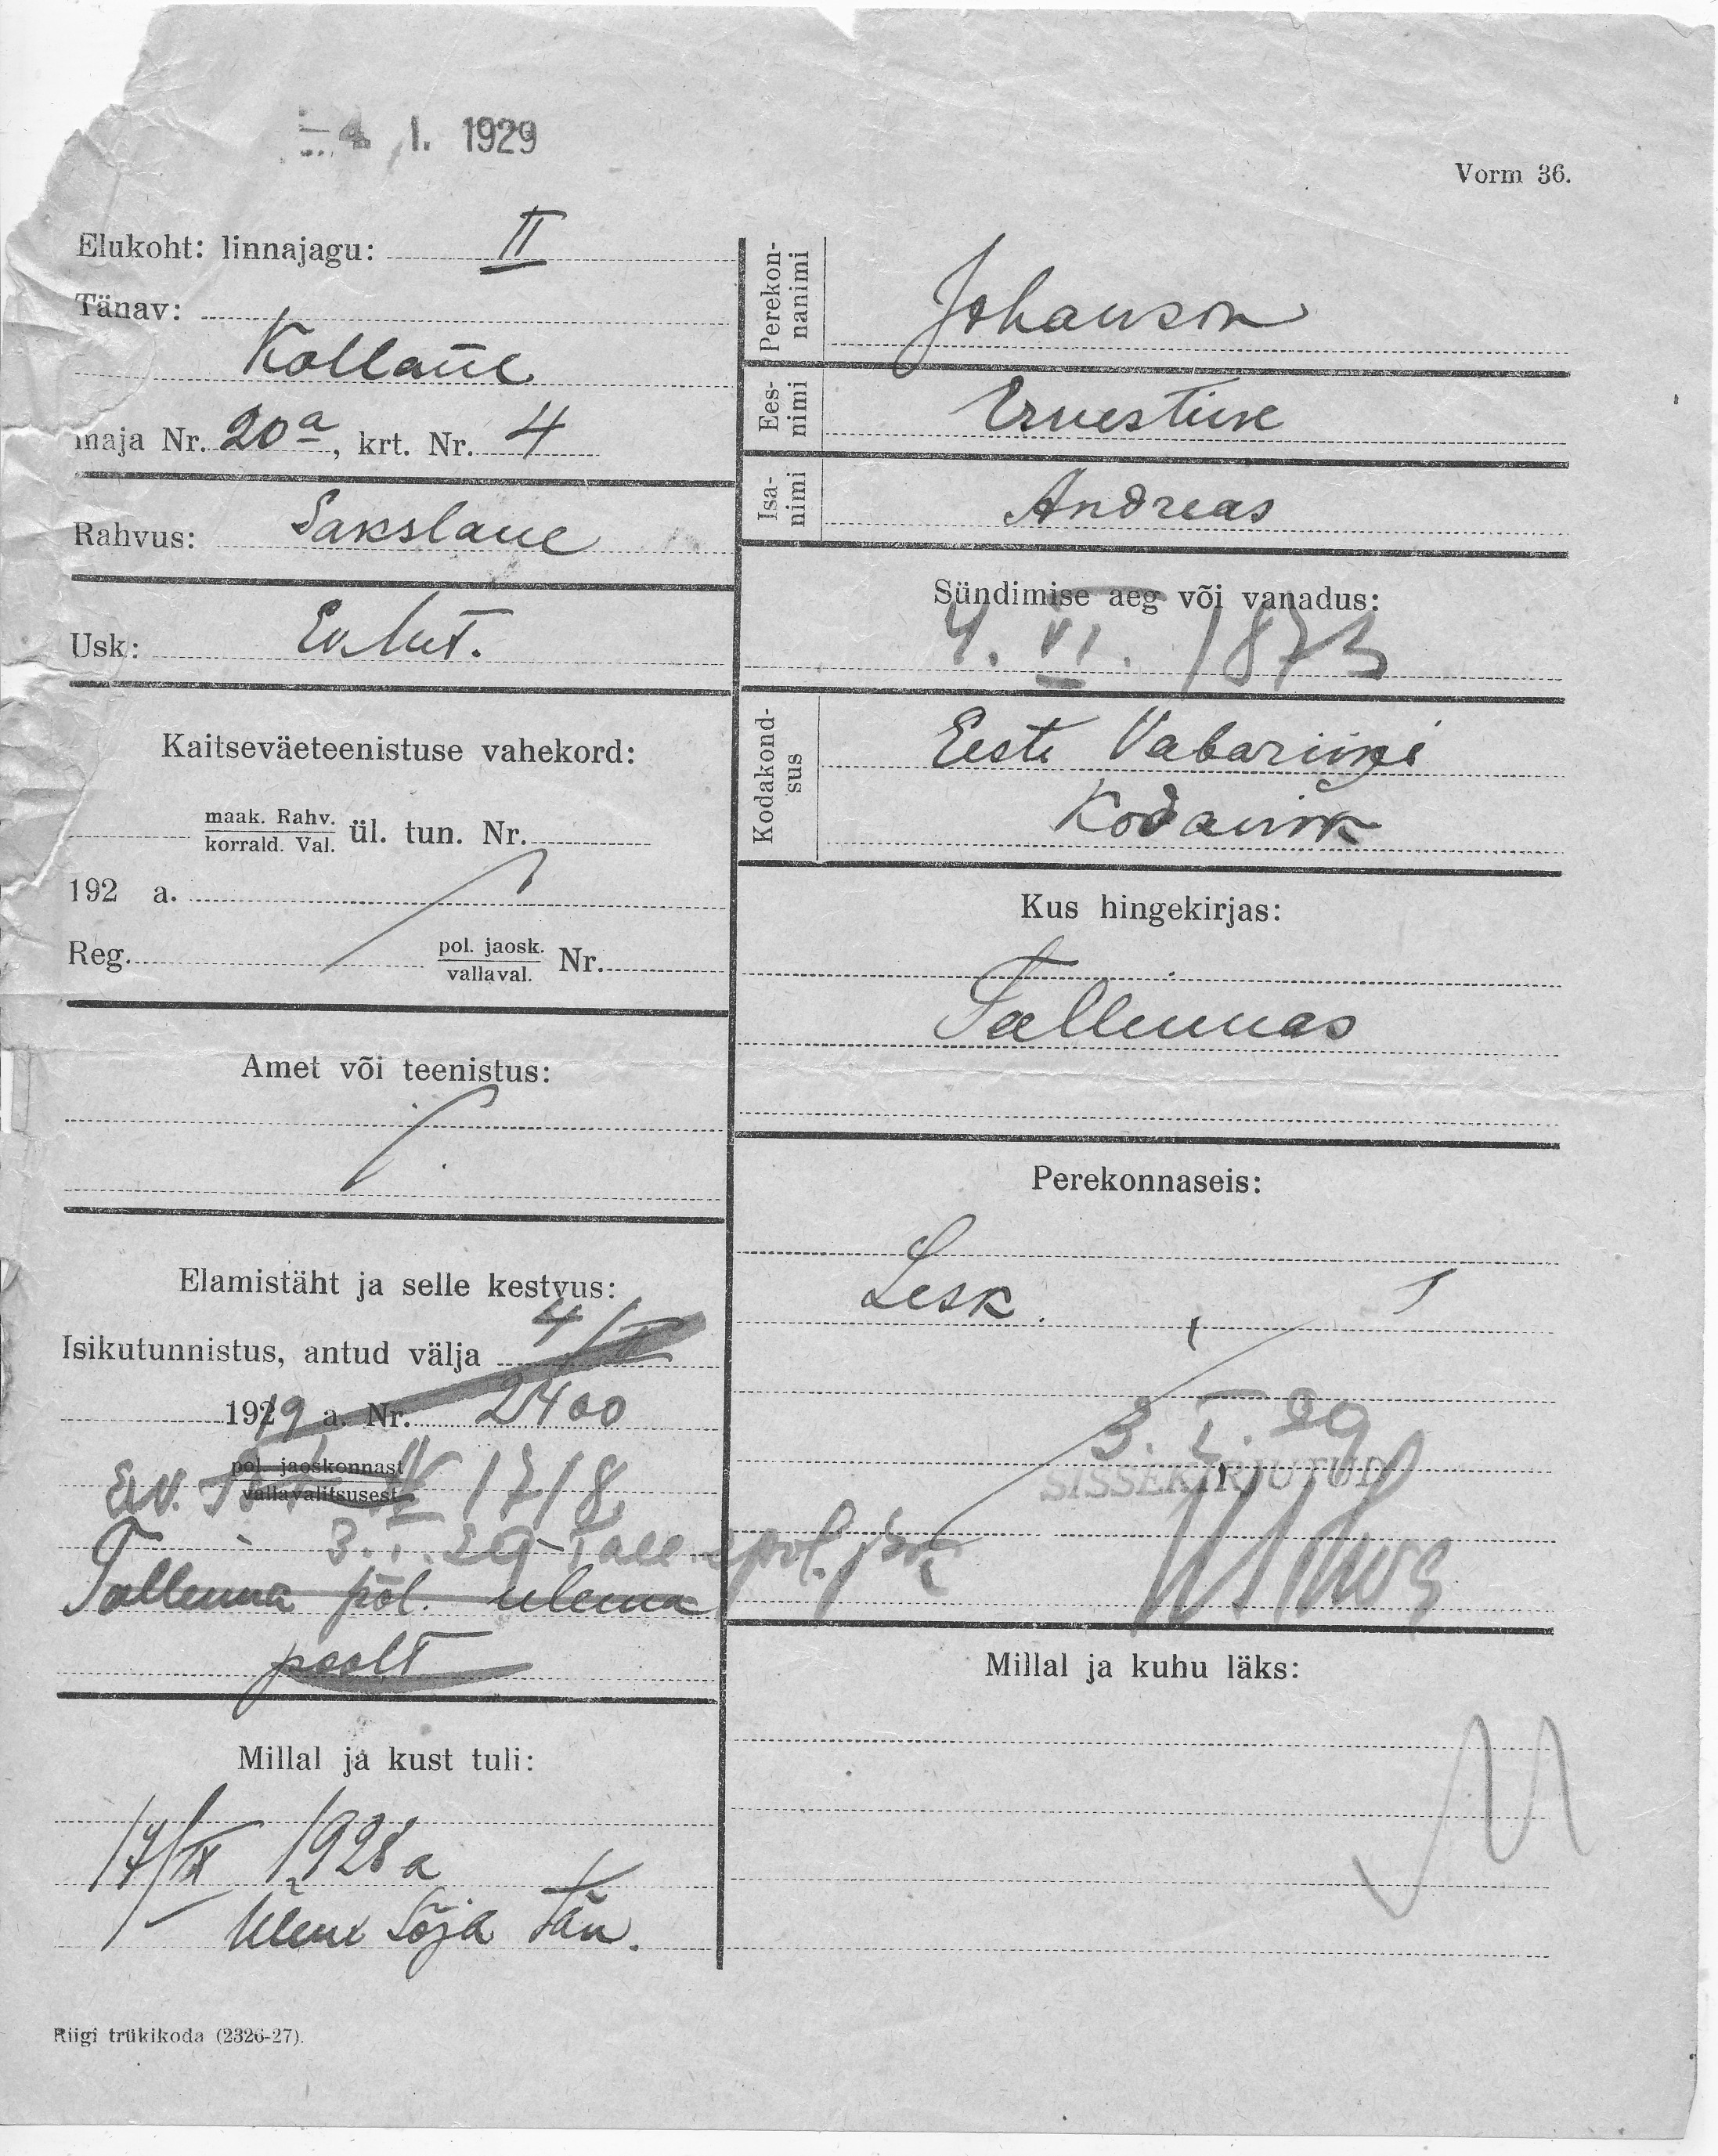 4. I. 1929
Vorm 36.
Elukoht: linnajagu: II
Tänav:
Kollane
maja Nr. 20a, krt. Nr. 4
Rahvus: Sakslane
Usk: Ev. lut.
Kaitseväeteenistuse vahekord:
maak. Rahv.
korrald. Val. ül. tun. Nr.
192 a.
Reg. pol. jaosk.
vallaval. Nr.
Amet või teenistus:
Elamistäht ja selle kestvus:
Isikutunnistus, antud välja 4/
1919 a. Nr. 2400
pol. jaoskonnast
vallavalitsusest
1718
3. I. 29 Tall. pol. jsk
Tallinna pol. ulema
poolt
Millal ja kust tuli:
17/IX 1928 a
Ülem Sõja tän.
Riigi trükikoda (2326-27).
Perekonnanimi
Johanson
Eesnimi
Ernestine
Isanimi
Andreas
Sündimise aeg või vanadus:
4. VI. 1873
Kodakondsus
Eesti Vabariigi
Kodanik
Kus hingekirjas:
Tallinnas
Perekonnaseis:
Lesk.
3. I. 29
SISSEKIRJUTUD
Millal ja kuhu läks: